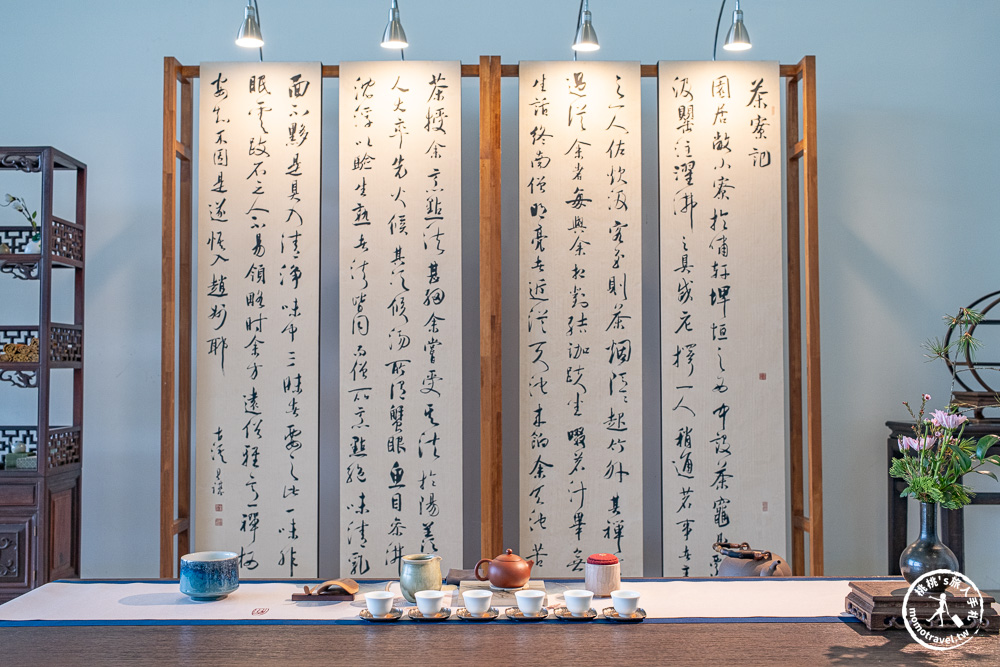 茶寮記
園居敞小寮於嘯軒埤垣之西中設茶竈凡
汲罌注濯沸之具咸庀擇一人稍通茗事者
之人佐炊汲客至則茶烟隱隱起竹外其禪
過從余者每與余相對結跏趺坐啜茗汁舉無
生話終南僧明亮者近從天池來餉余天池苦
茶授余烹點法甚細余嘗受其法於陽羨
人大率先火候其次候湯所謂蟹眼魚目參沸
沈浮以驗生熟者法皆同而僧所烹點絕味清乳
面不黟是具入清淨味中三昧者要之此一味非
眠雲跂石之人不易領略時余方遠俗雅意禪棲
安知不因是遂悟入趙州耶
桃桃's旅人手札
momotravel.tw